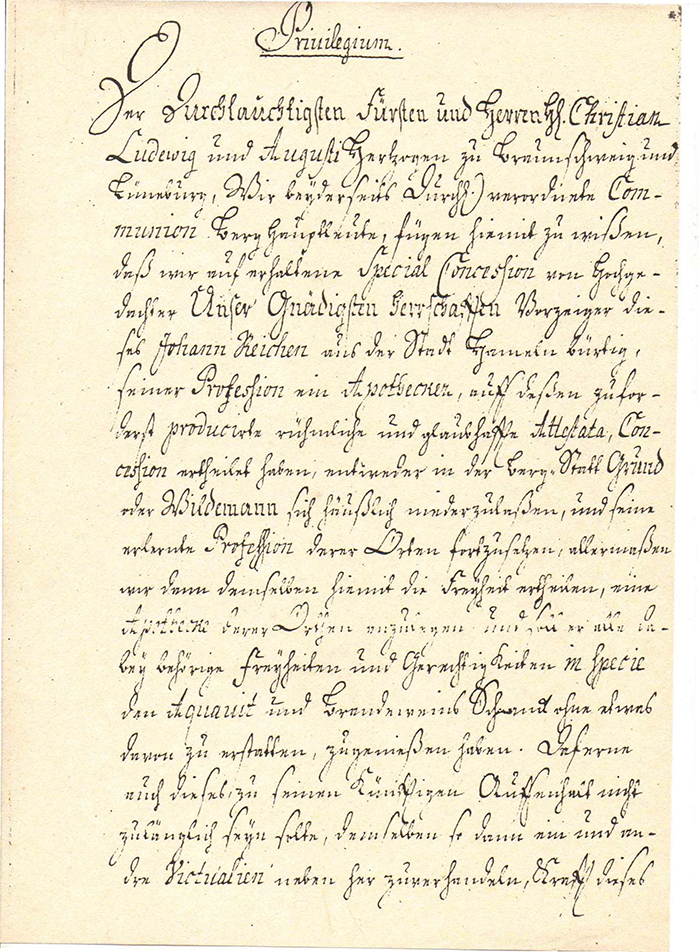 Privilegium.
Der Durchlauchtigsten Fürsten und Herren HH. Christian
Ludewig und Augusti Hertzogen zu Braunschweig und
Lüneburg, Wir beyderseits Durchl.) verordnete Com-
munion Berg Hauptleute, fügen hiemit zu wißen,
daß wir auf erhaltene Special Concession von Hochge-
dachter Unser Gnädigsten Herrschafften Vorzeiger die-
ses Johann Reichen aus der Stadt Hameln bürtig,
seiner Profession ein Apothecker, auff deßen zufor-
derst producirte rühmliche und glaubhaffte Attestata, Con-
cession ertheilet haben, entweder in der Berg-Statt Grund
oder Wildemann sich häußlich niederzulaßen, und seine
erlernte Profession derer Orten fortzusetzen, allermaßen
wir denn demselben hiemit die Freyheit ertheilen, eine
Apothecke derer Orthen anzulegen und soll er alle da-
bey behörige Freyheiten und Gerechtigkeiten in specie
den Aquavit und Brandeweins Schanck ohne etwas
davon zu erstatten, zugenießen haben. Daferne
auch dieses zu seinen Künfftigen Auffenhalt nicht
zulänglich seyn solte, demselben so dann ein und an-
dre Victualien neben her zuverhandeln, Krafft dieses